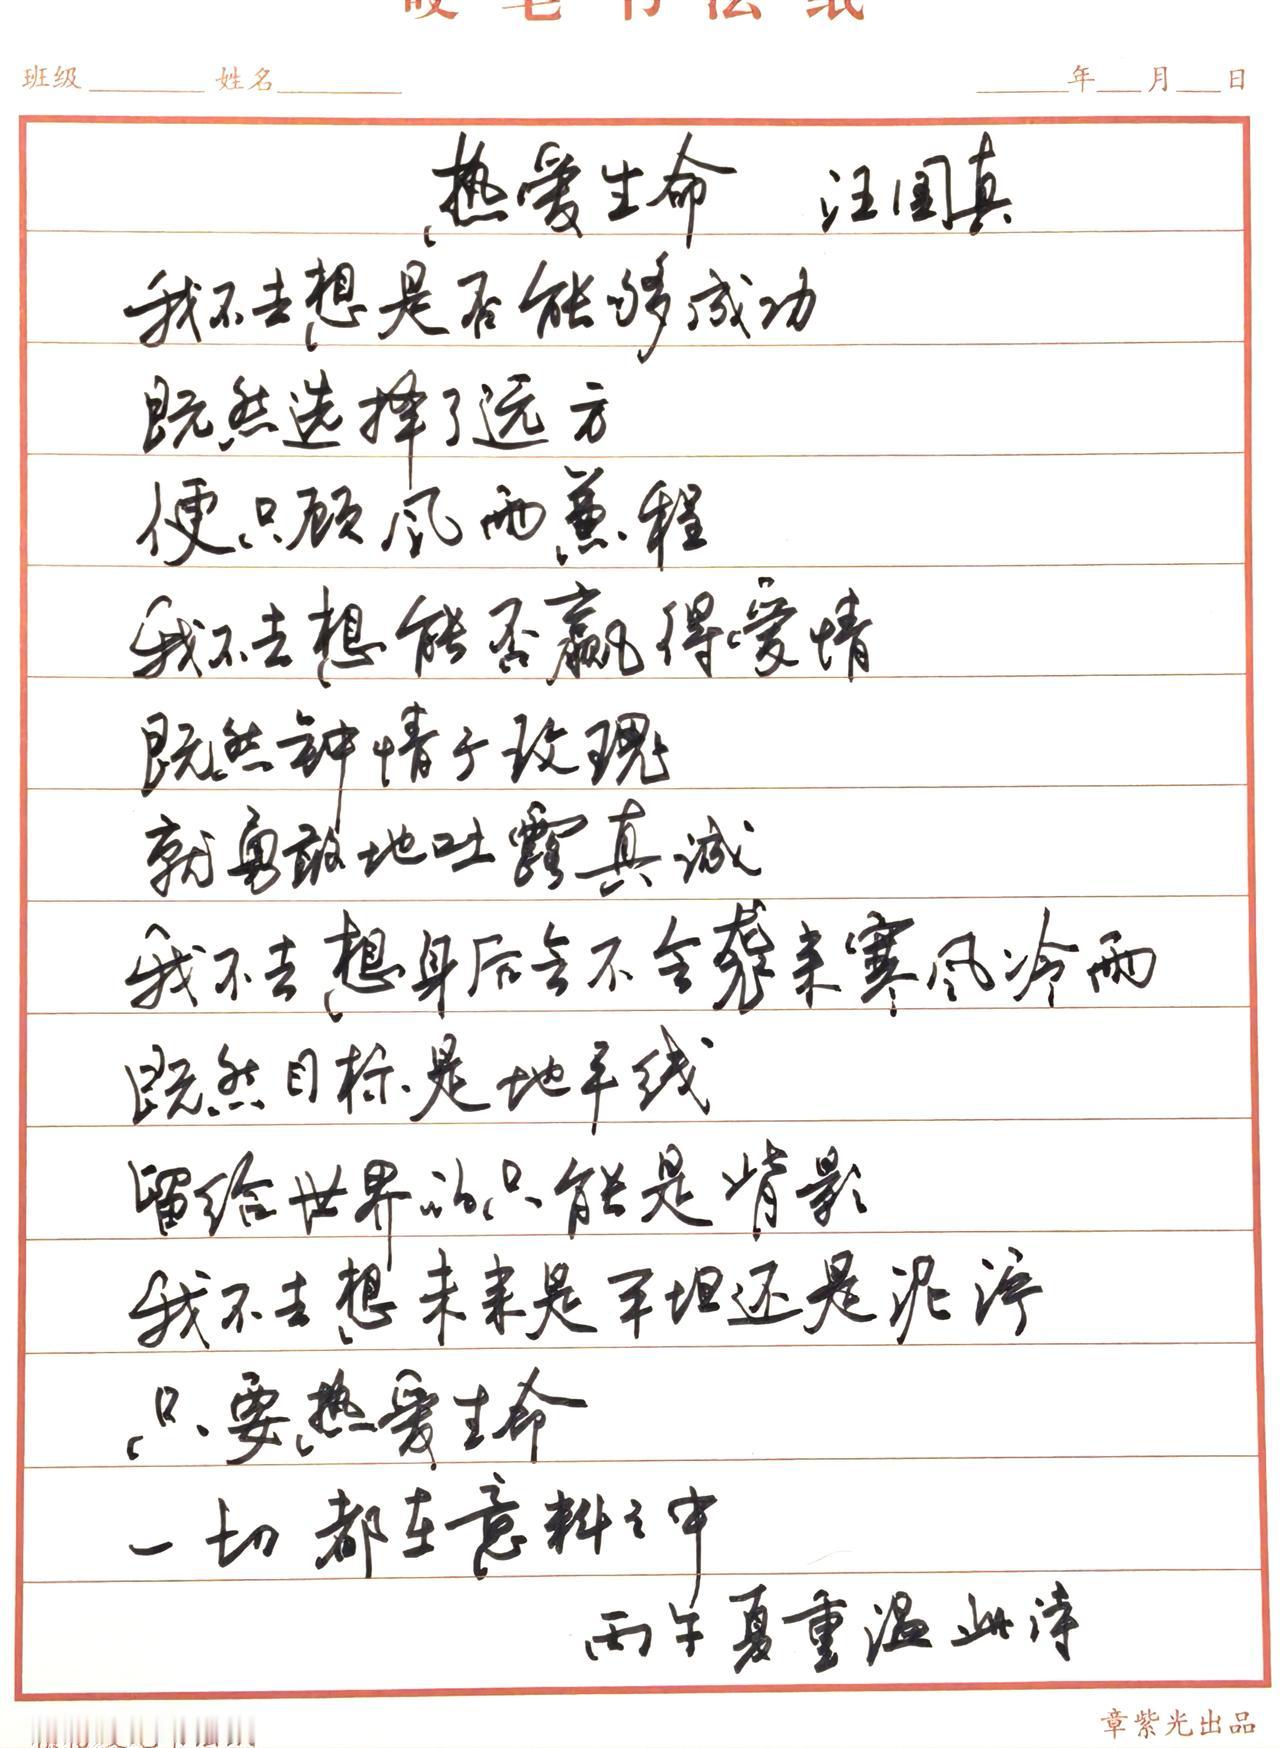 硬笔书法纸
班级 姓名 年 月 日
热爱生命 汪国真
我不去想是否能够成功
既然选择了远方
便只顾风雨兼程
我不去想能否赢得爱情
既然钟情于玫瑰
就勇敢地吐露真诚
我不去想身后会不会袭来寒风冷雨
既然目标是地平线
留给世界的只能是背影
我不去想未来是平坦还是泥泞
只要热爱生命
一切都在意料之中
丙午夏重温此诗
章紫光出品